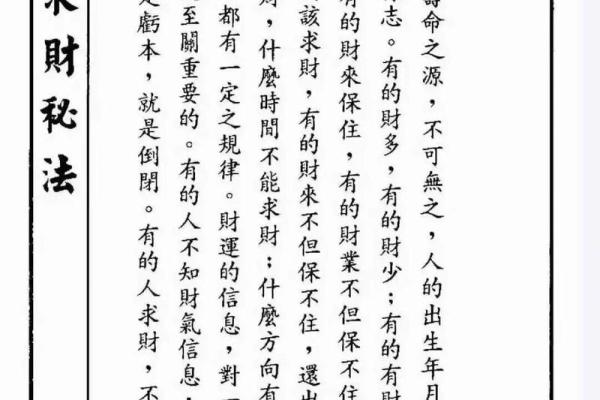 壽命之源，不可無之，人的出生年月
志。有的財多，有的財少；有的有財
有的財來保住，有的財業不但保不住
該求財，有的財來不但保不住，還出
財，什麼時間不能求財；什麼方向有
都有一定之規律。財運的信息，對一
至關重要的。有的人不知財氣信息，
是虧本，就是倒閉。有的人求財，不
求財秘法